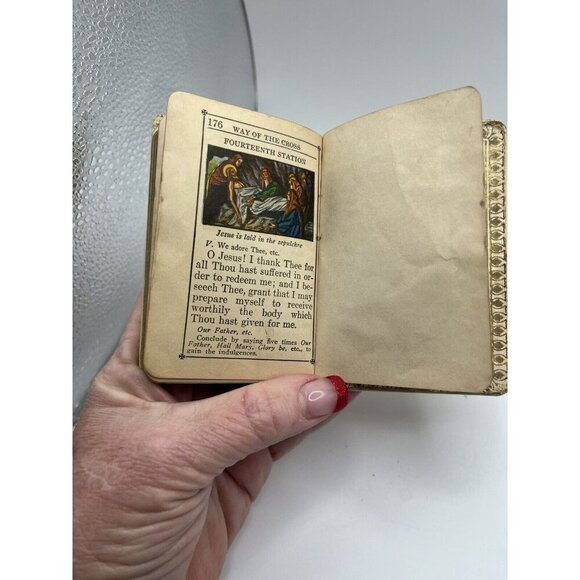 176 WAY OF THE CROSS
FOURTEENTH STATION
Jesus is laid in the sepulchre
V. We adore Thee, etc.
O Jesus! I thank Thee for
all Thou hast suffered in or-
der to redeem me; and I be-
seech Thee, grant that I may
prepare myself to receive
worthily the body which
Thou hast given for me.
Our Father, etc.
Conclude by saying five times Our
Father, Hail Mary, Glory be, etc., to
gain the indulgences.